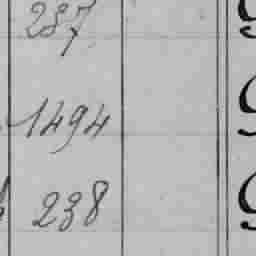 287
1494
238